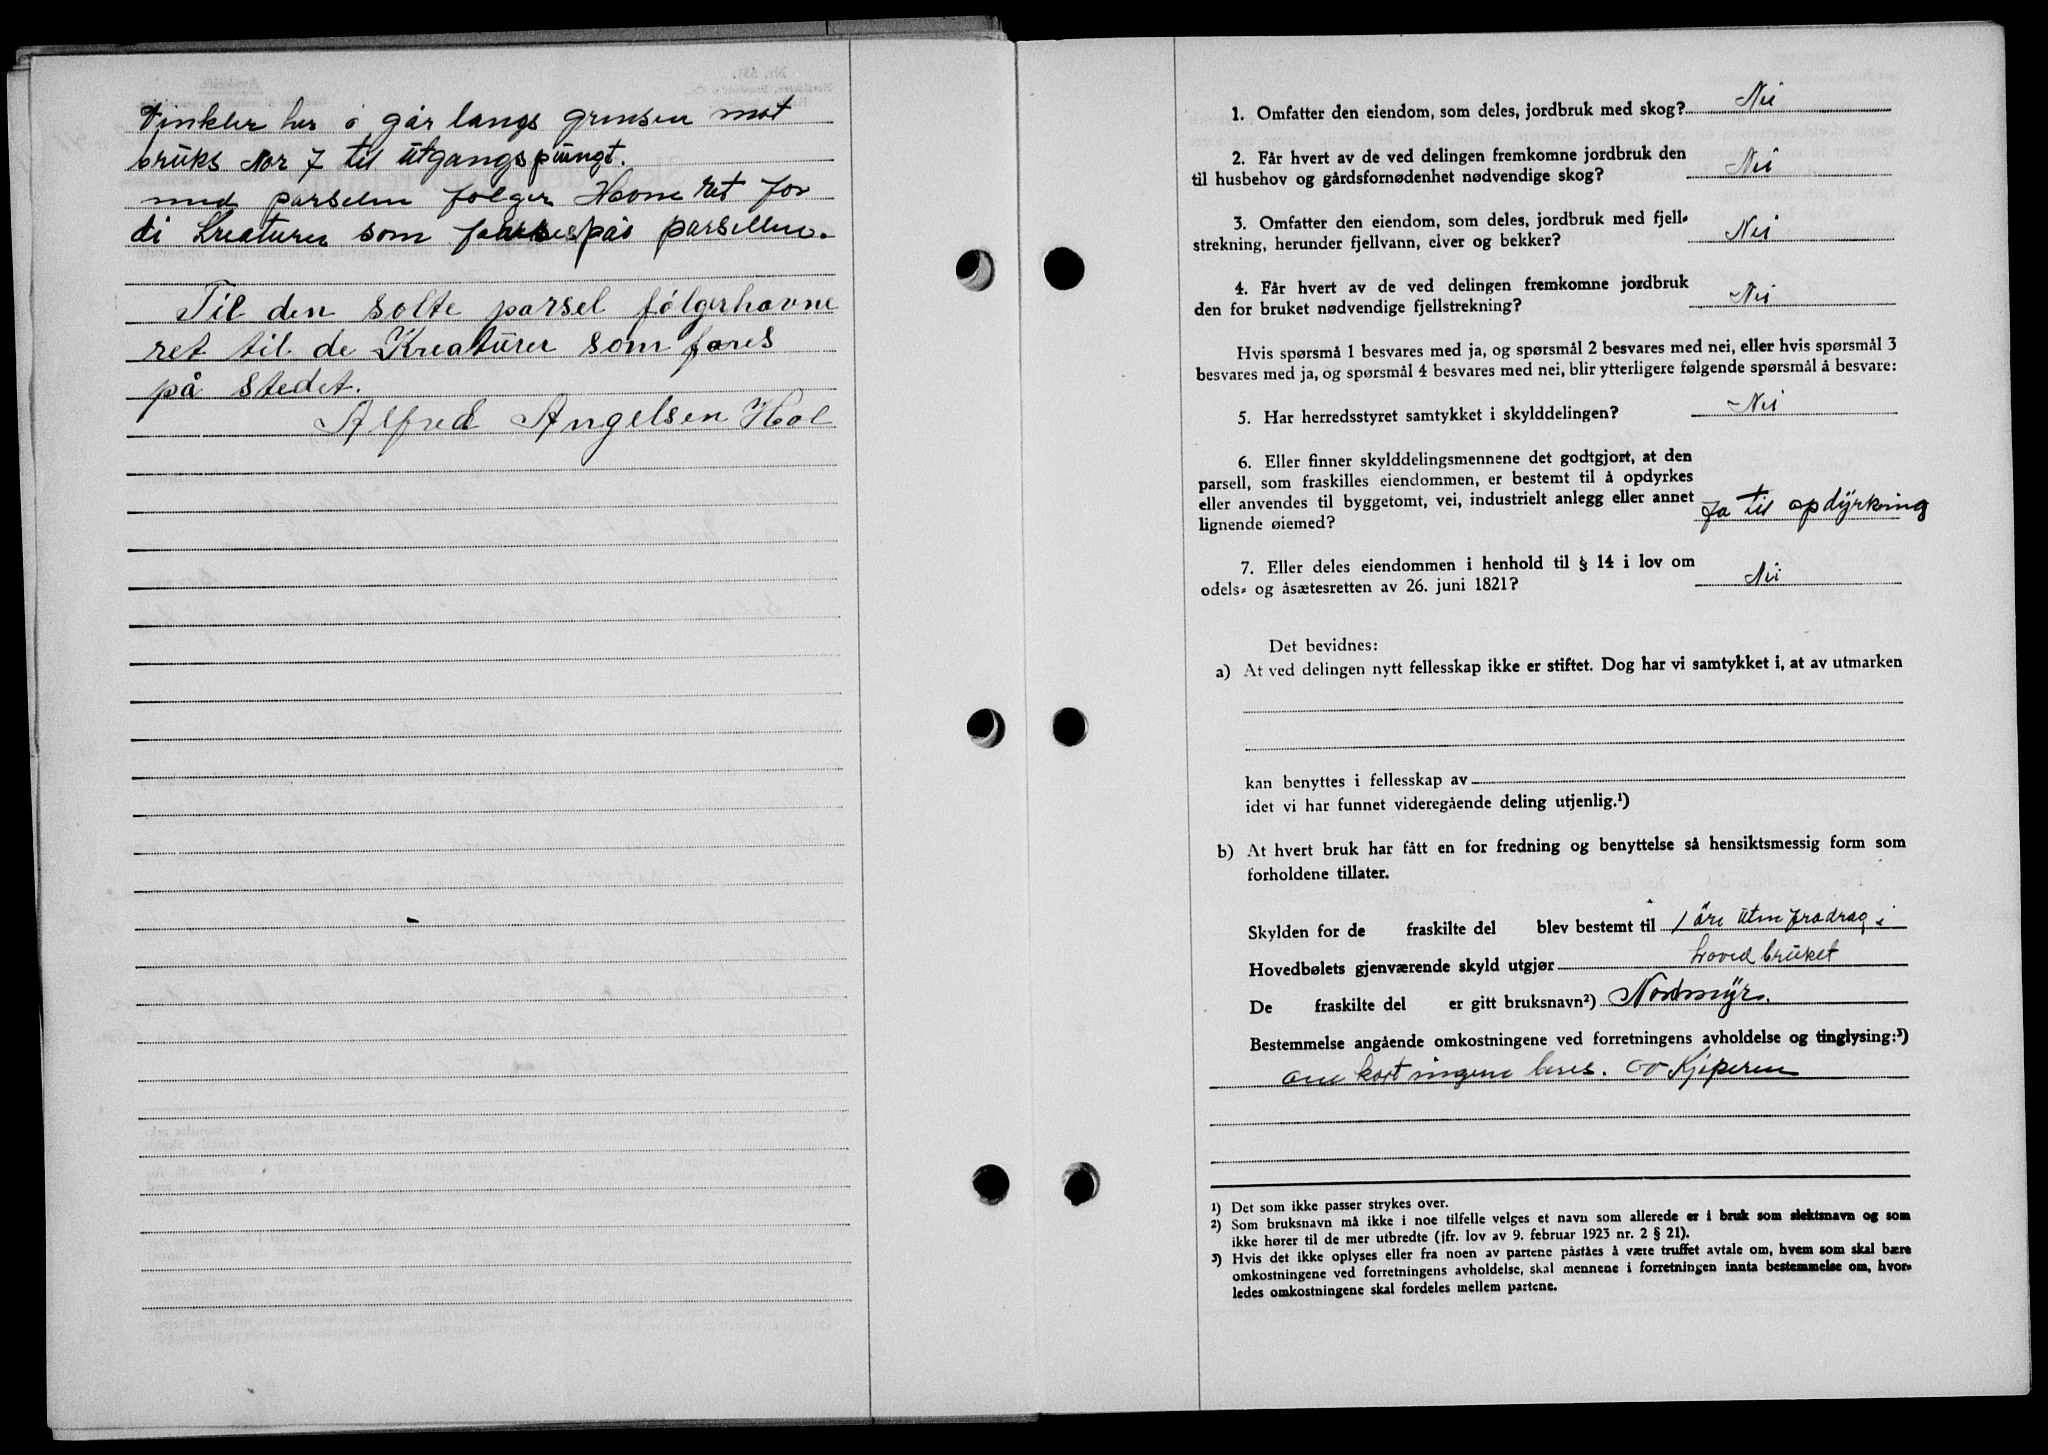 Vinkler her o går langs grensen mot
bruks Nor 7 til utgangspungt.
med parselen følger Havne ret for
di Kreaturer som fores på parsellen.
Til den solte parsel følger havne
ret til de Kreaturer som fores
på stedet.
Alfred Angelsen Hol
1. Omfatter den eiendom, som deles, jordbruk med skog? Nei
2. Får hvert av de ved delingen fremkomne jordbruk den
til husbehov og gårdsfornødenhet nødvendige skog? Nei
3. Omfatter den eiendom, som deles, jordbruk med fjell-
strekning, herunder fjellvann, elver og bekker? Nei
4. Får hvert av de ved delingen fremkomne jordbruk
den for bruket nødvendige fjellstrekning? Nei
Hvis spørsmå 1 besvares med ja, og spørsmål 2 besvares med nei, eller hvis spørsmål 3
besvares med ja, og spørsmål 4 besvares med nei, blir ytterligere følgende spørsmål å besvare:
5. Har herredsstyret samtykket i skylddelingen? Nei
6. Eller finner skylddelingsmennene det godtgjort, at den
parsell, som fraskilles eiendommen, er bestemt til å opdyrkes
eller anvendes til byggetomt, vei, industrielt anlegg eller annet
lignende øiemed? Ja til opdyrkning
7. Eller deles eiendommen i henhold til § 14 i lov om
odels- og åsætesretten av 26. juni 1821? Nei
Det bevidnes:
a) At ved delingen nytt fellesskap ikke er stiftet. Dog har vi samtykket i, at av utmarken
kan benyttes i fellesskap av
idet vi har funnet videregående deling utjenlig.¹)
b) At hvert bruk har fått en for fredning og benyttelse så hensiktsmessig form som
forholdene tillater.
Skylden for de fraskilte del blev bestemt til 1 øre uten fradrag i
Hovedbølets gjenværende skyld utgjør hoved bruket
De fraskilte del er gitt bruksnavn²) Nordmyr.
Bestemmelse angående omkostningene ved forretningens avholdelse og tinglysing:³)
omkostningene beres. av Kjøperen
¹) Det som ikke passer strykes over.
²) Som bruksnavn må ikke i noe tilfelle velges et navn som allerede er i bruk som slektsnavn og som
ikke hører til de mer utbredte (jfr. lov av 9. februar 1923 nr. 2 § 21).
³) Hvis det ikke oplyses eller fra noen av partene påståes å være truffet avtale om, hvem som skal bære
omkostningene ved forretningens avholdelse, skal mennene i forretningen innta bestemmelse om, hvor-
ledes omkostningene skal fordeles mellem partene.